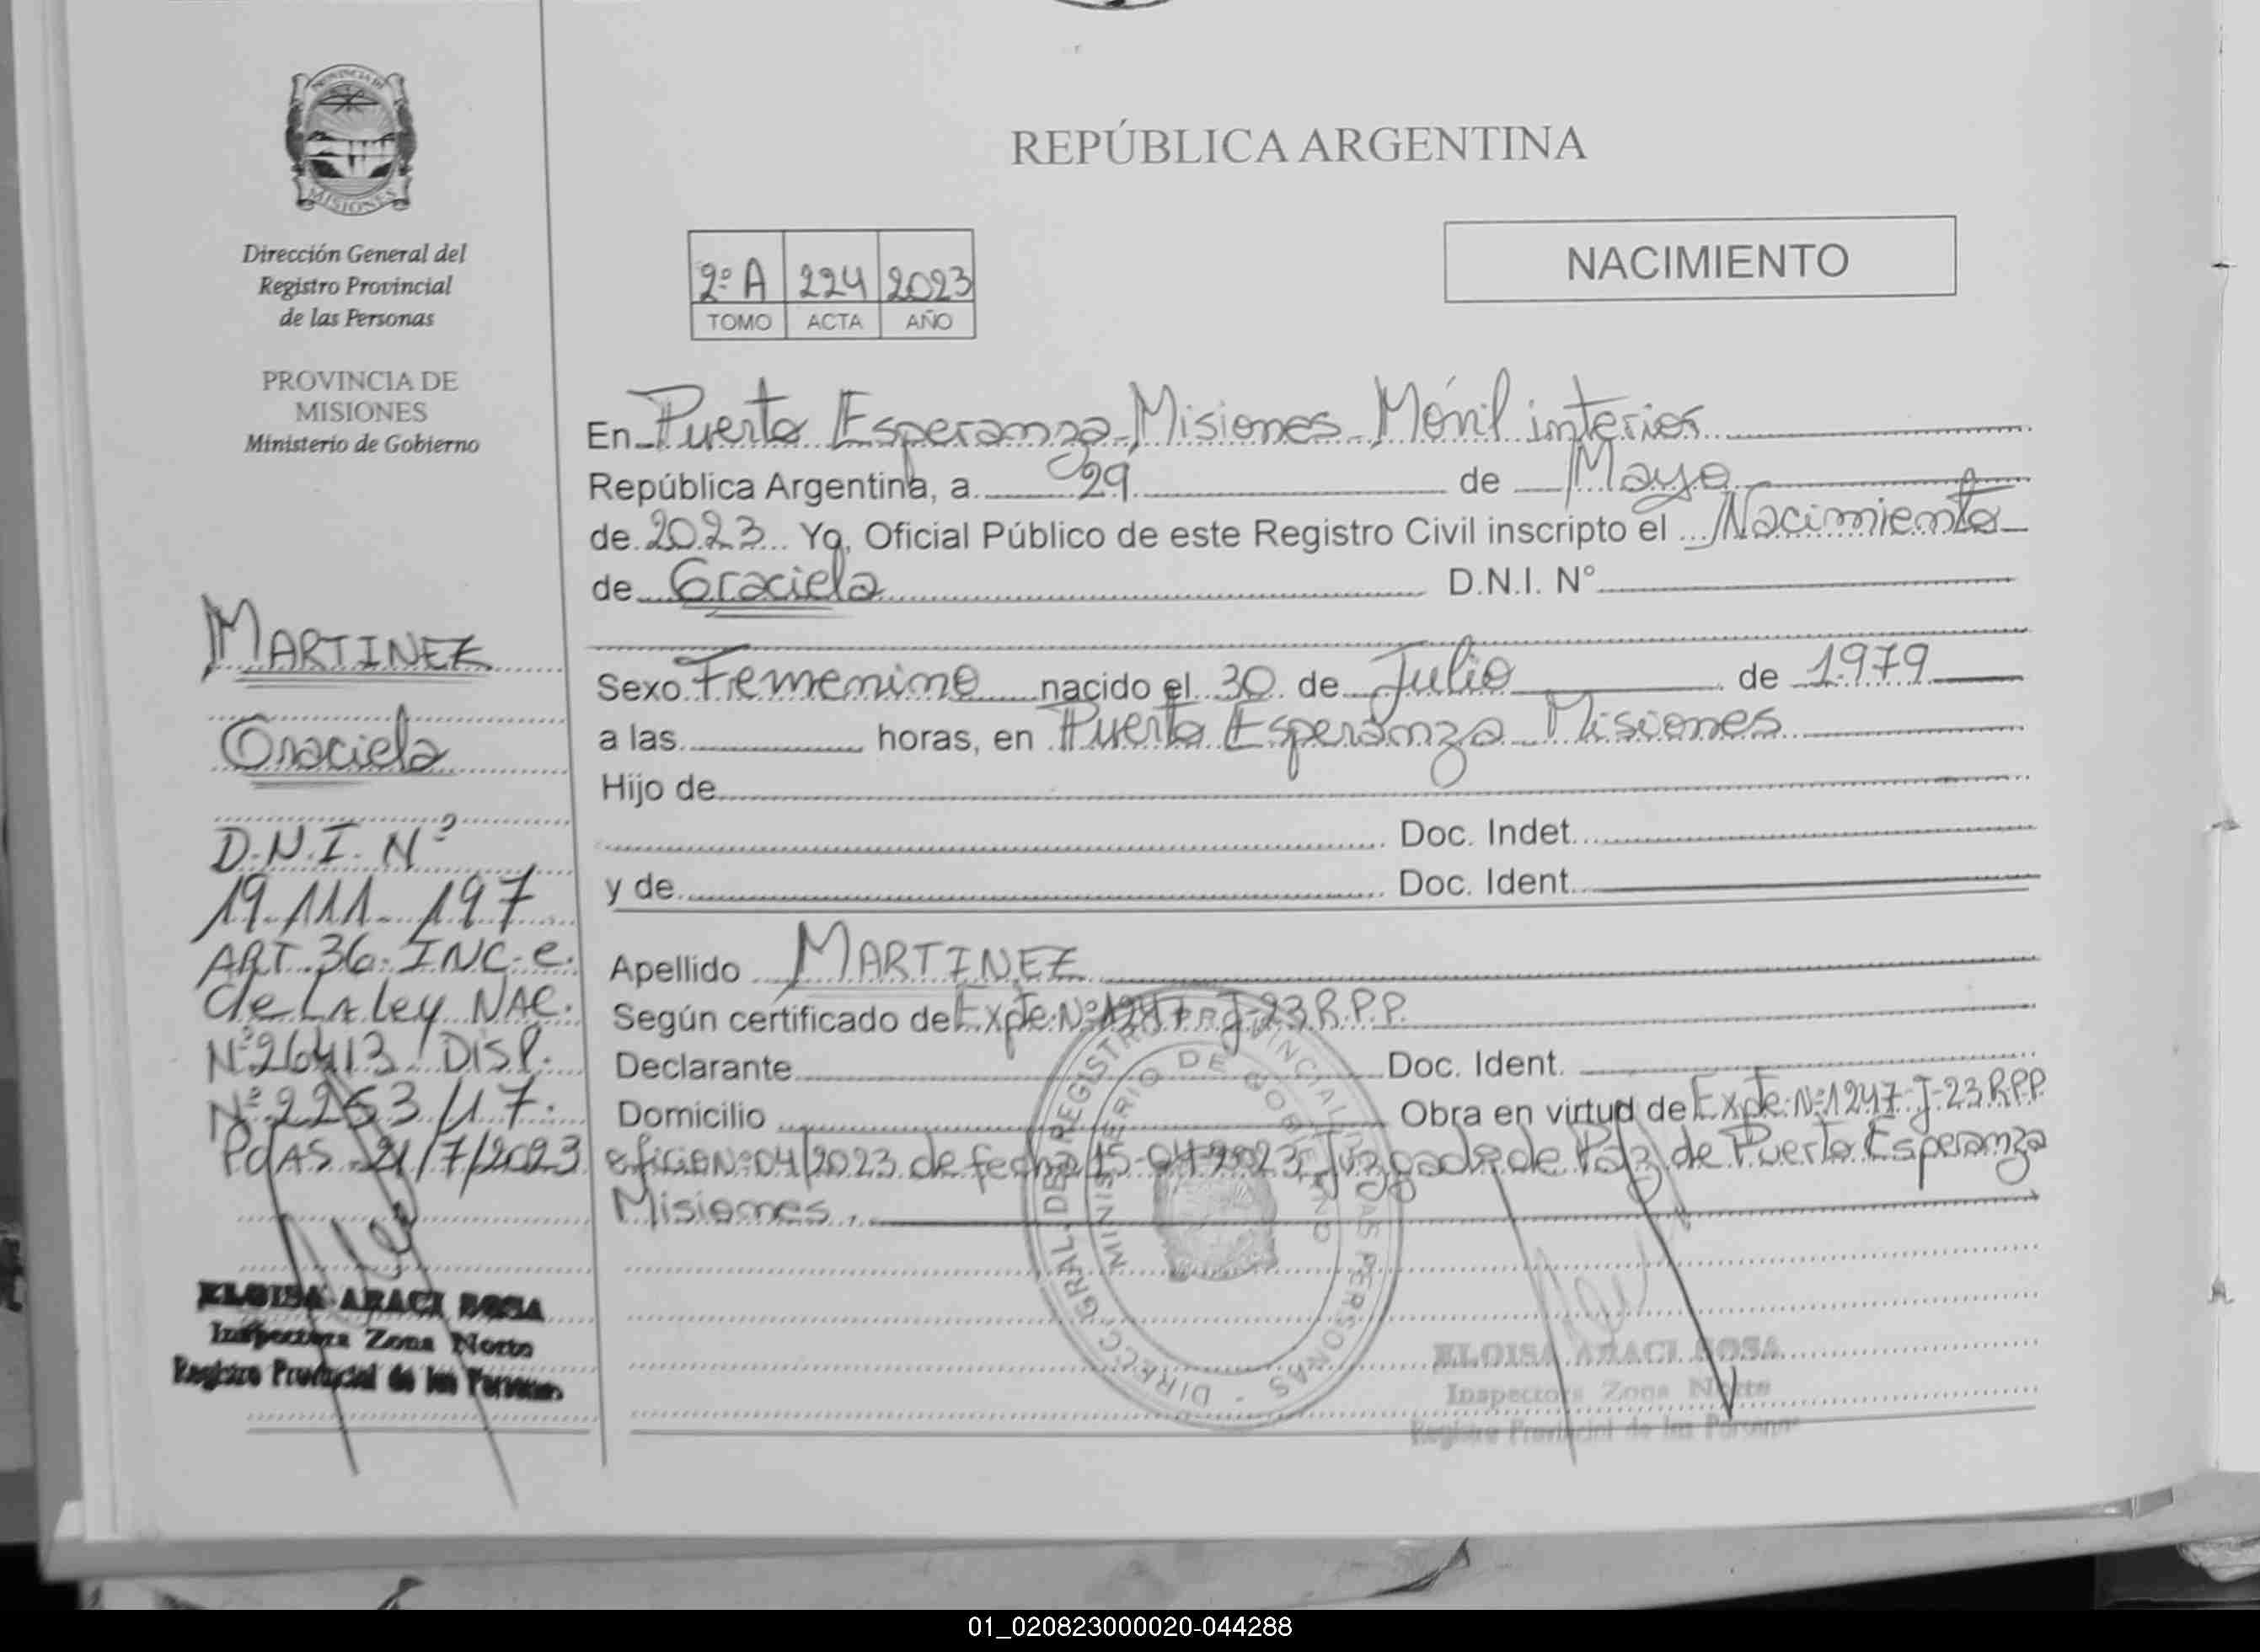 PROVINCIA DE
MISIONES
Dirección General del
Registro Provincial
de las Personas
PROVINCIA DE
MISIONES
Ministerio de Gobierno
MARTINEZ
Graciela
D.N.I. Nº
19.111.197
ART. 36. INC. e.
de LA Ley NAC.
Nº 26413. DISP.
Nº 2253/17.
PdAS. 21/7/2023
ELOISA ARACI SOSA
Inspectora Zona Norte
Registro Provincial de las Personas
REPÚBLICA ARGENTINA
NACIMIENTO
2º A 224 2023
TOMO ACTA AÑO
En Puerto Esperanza, Misiones Móvil interior
República Argentina, a 29 de Mayo
de 2023 Yo, Oficial Público de este Registro Civil inscripto el Nacimiento
de Graciela D.N.I. N°
Sexo Femenino nacido el 30 de Julio de 1979
a las horas, en Puerto Esperanza Misiones
Hijo de
Doc. Indet.
y de Doc. Ident.
Apellido MARTINEZ
Según certificado de Expte. Nº 1247-J-23 R.P.P.
Declarante Doc. Ident.
Domicilio Obra en virtud de Expte. Nº 1247-J-23 R.P.P.
oficio Nº 04/2023 de fecha 15-04-2023, Juzgado de Paz de Puerto Esperanza
Misiones.
DIRECC. GRAL. DEL REGISTRO PROVINCIAL DE LAS PERSONAS -
MINISTERIO DE GOBIERNO
ELOISA ARACI SOSA
Inspectora Zona Norte
Registro Provincial de las Personas
01_020823000020-044288